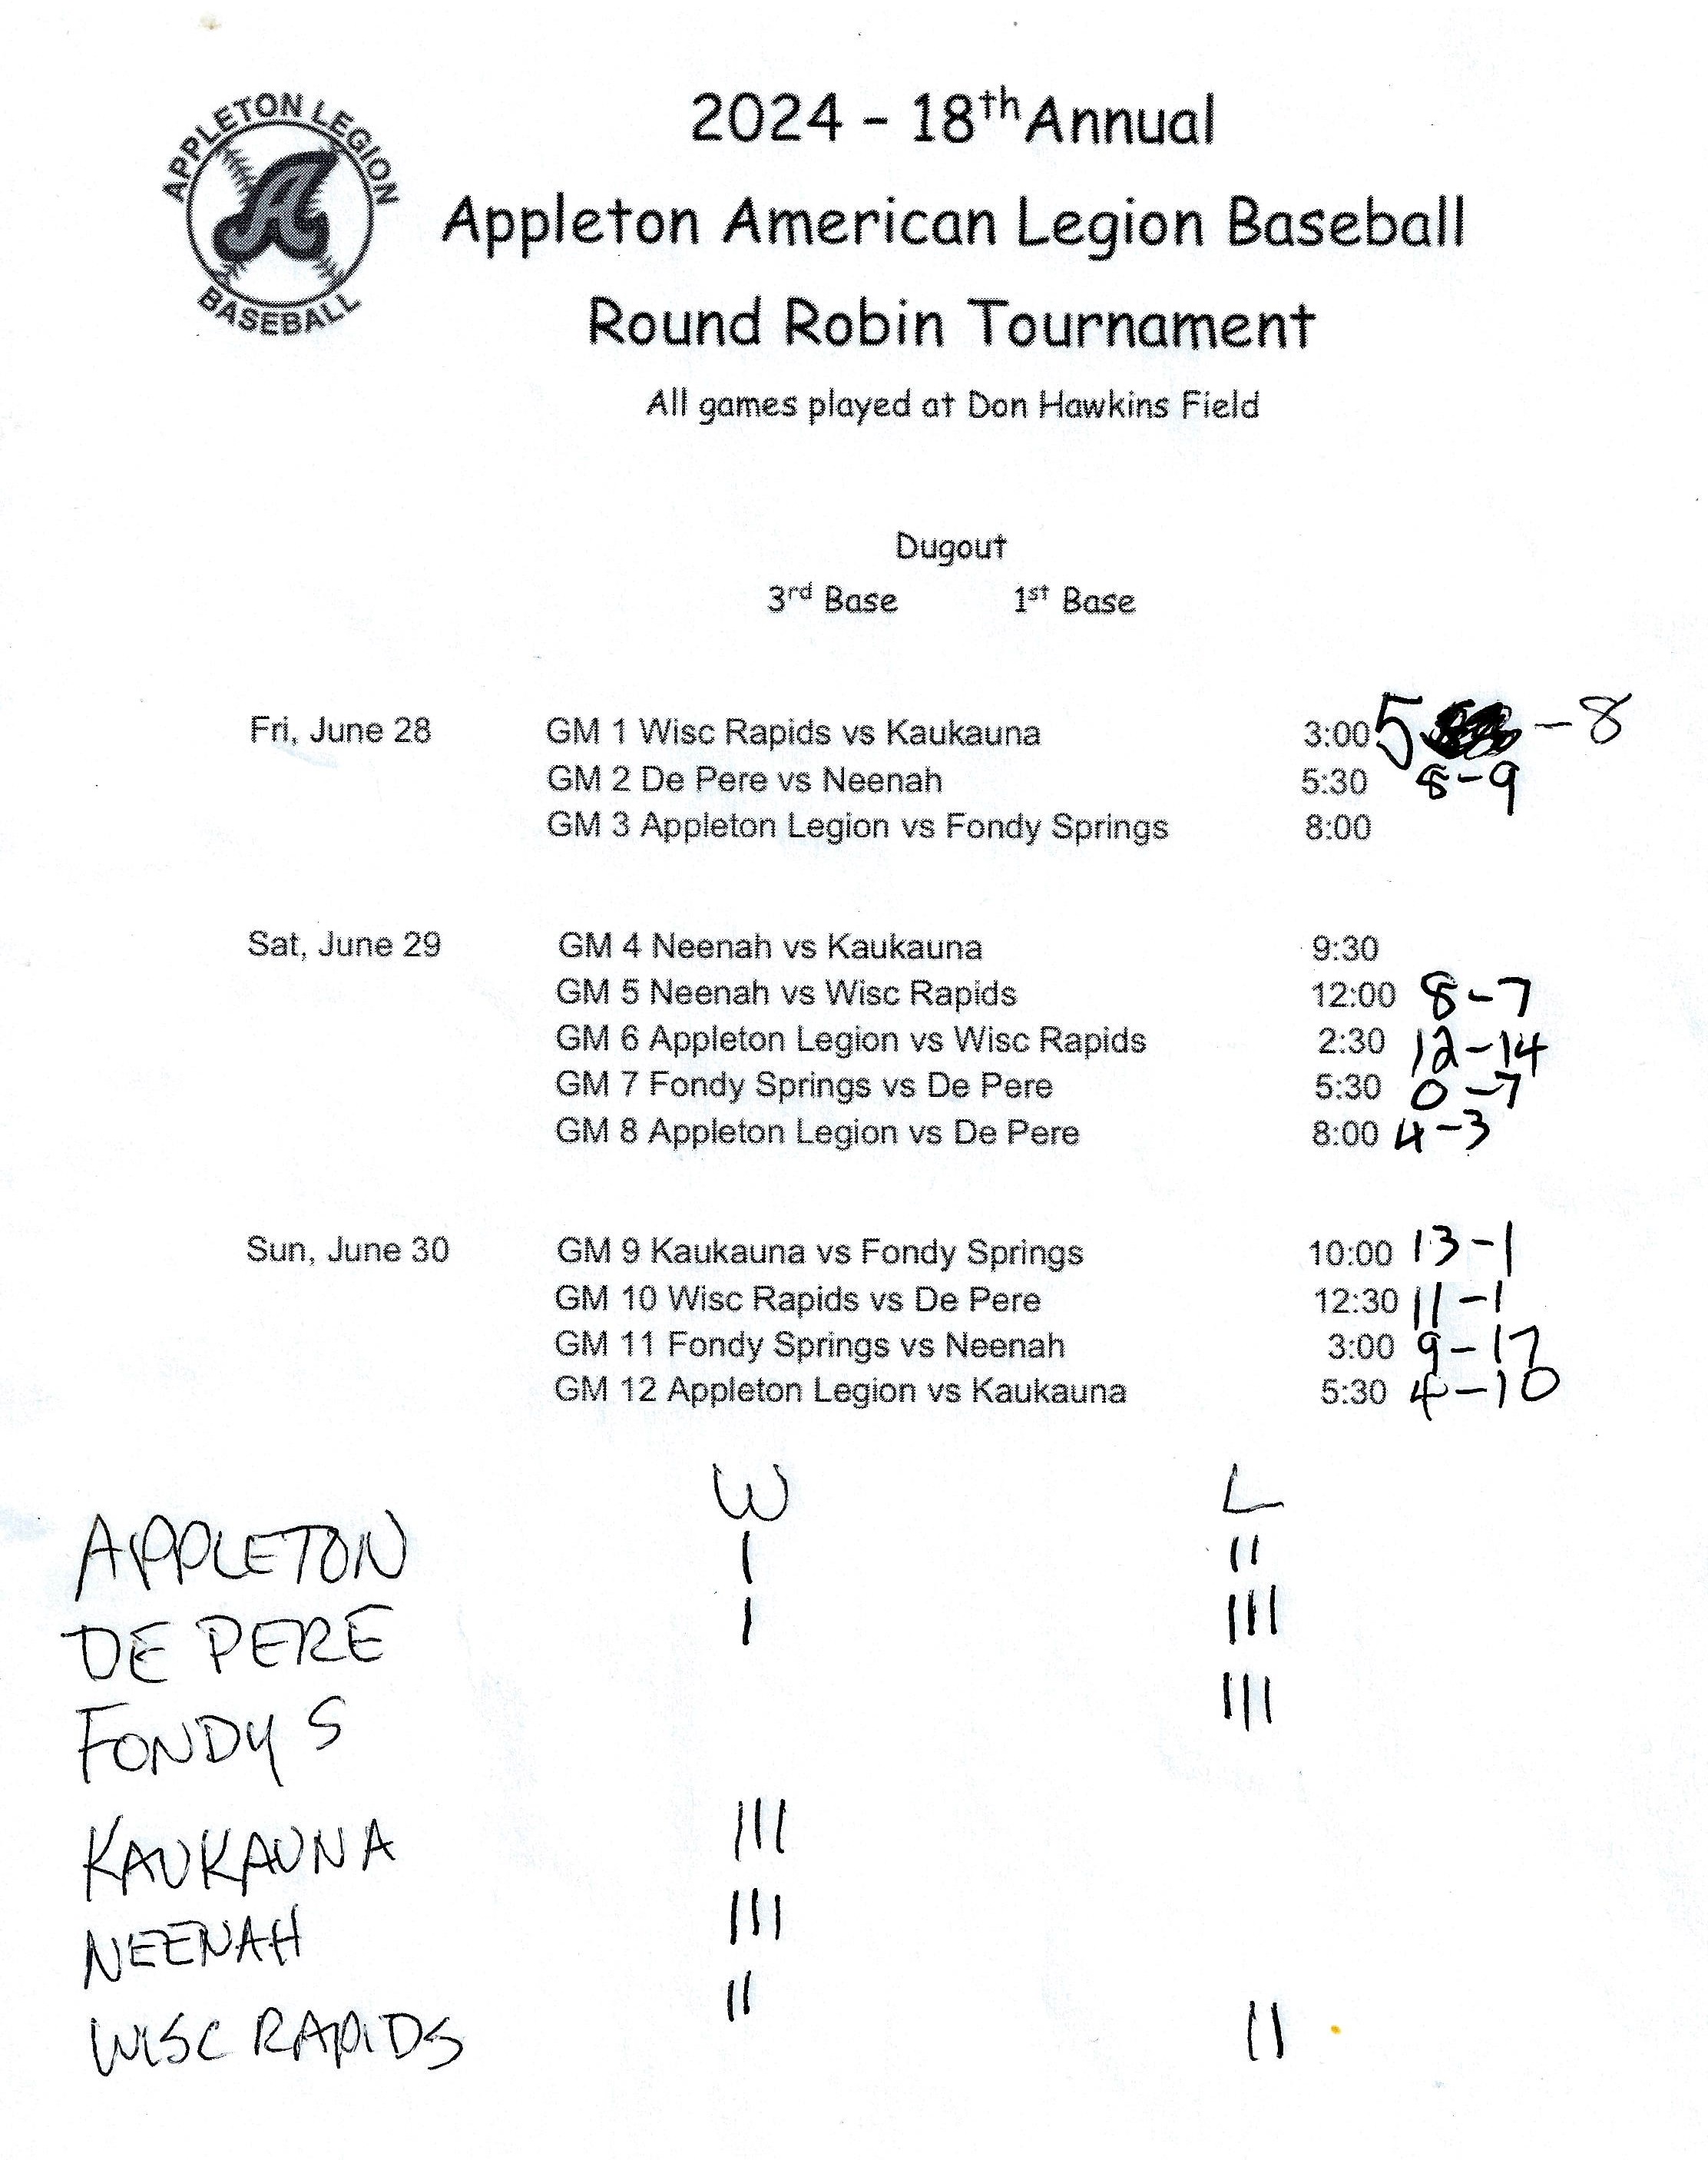 APPLETON LEGION
BASEBALL
2024 - 18th Annual
Appleton American Legion Baseball
Round Robin Tournament
All games played at Don Hawkins Field
Dugout
3rd Base 1st Base
Fri, June 28 GM 1 Wisc Rapids vs Kaukauna 3:00 5 - 8
GM 2 De Pere vs Neenah 5:30 8-9
GM 3 Appleton Legion vs Fondy Springs 8:00
Sat, June 29 GM 4 Neenah vs Kaukauna 9:30
GM 5 Neenah vs Wisc Rapids 12:00 8-7
GM 6 Appleton Legion vs Wisc Rapids 2:30 12-14
GM 7 Fondy Springs vs De Pere 5:30 0-7
GM 8 Appleton Legion vs De Pere 8:00 4-3
Sun, June 30 GM 9 Kaukauna vs Fondy Springs 10:00 13-1
GM 10 Wisc Rapids vs De Pere 12:30 11-1
GM 11 Fondy Springs vs Neenah 3:00 9-17
GM 12 Appleton Legion vs Kaukauna 5:30 4-10
W L
APPLETON I II
DE PERE I III
FONDY S III
KAUKAUNA III
NEENAH III
WISC RAPIDS II II